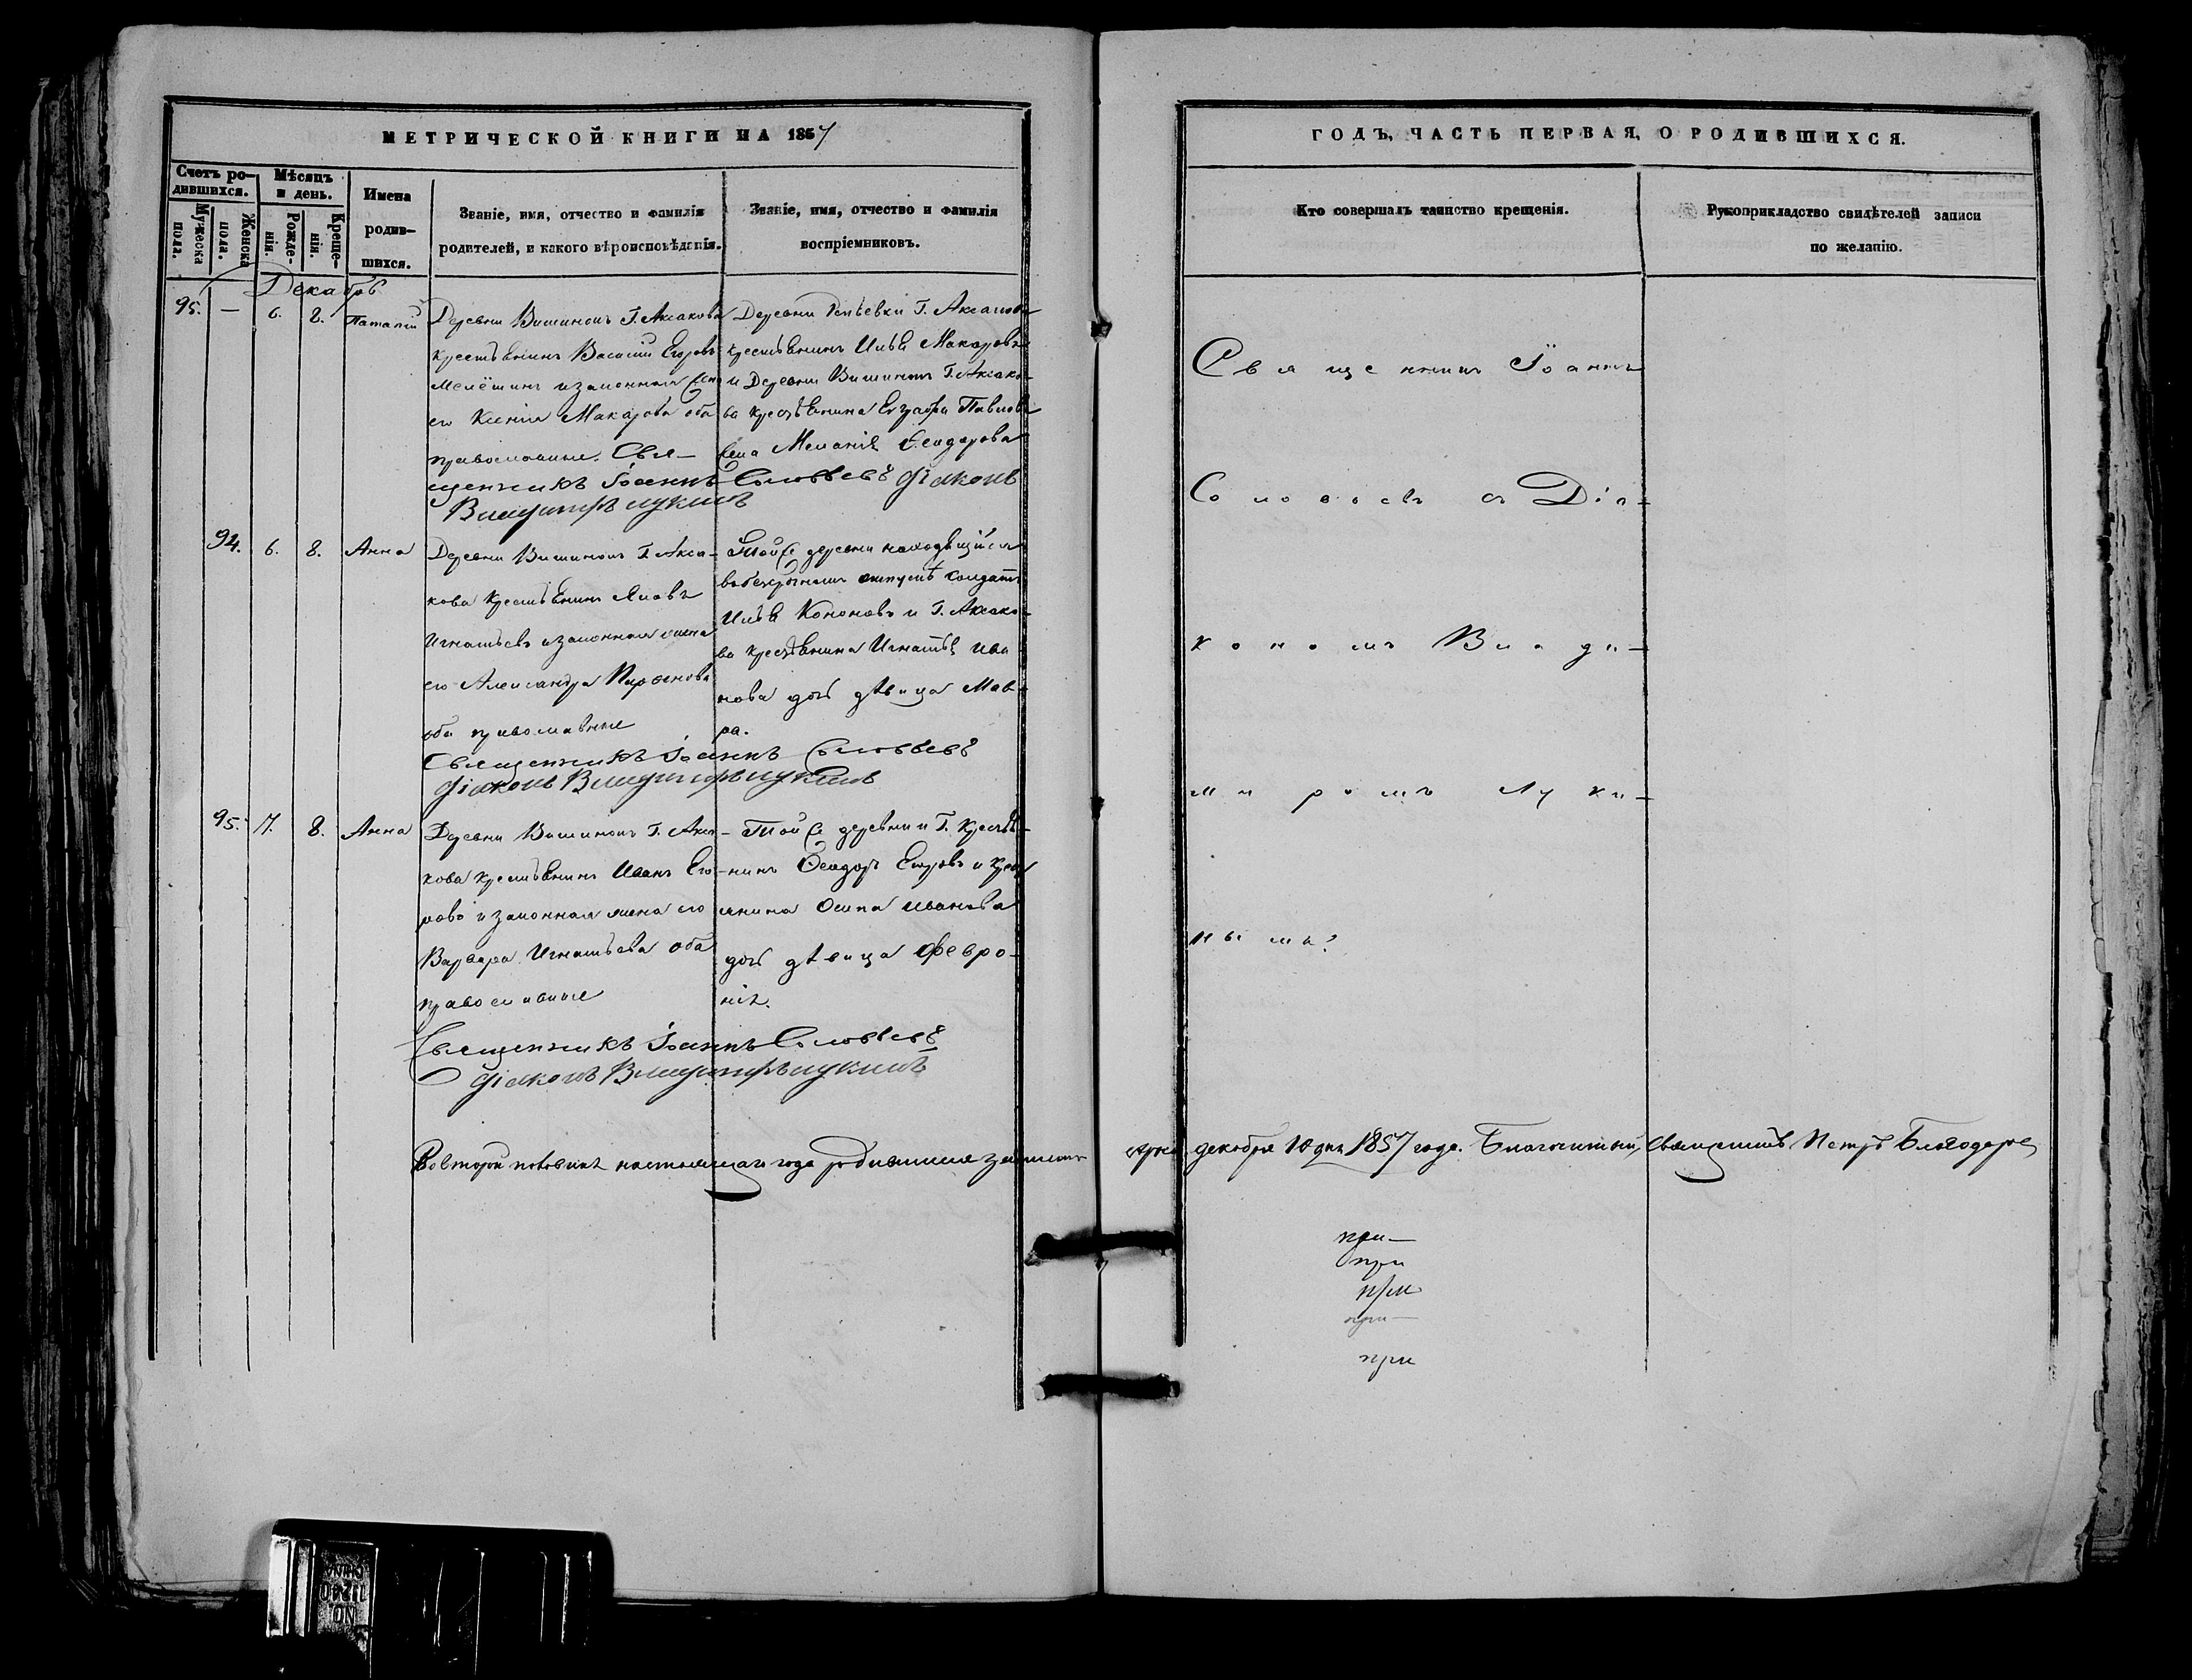 МЕТРИЧЕСКОЙ КНИГИ НА 1857
Счетъ ро-
дившихся.
Мужеска пола.
Женска пола.
Мѣсяцъ
и день.
Рожде-
нія.
Креще-
нія.
Имена
родив-
шихся.
Званіе, имя, отчество и фамилія
родителей, и какого вѣроисповѣданія.
Званіе, имя, отчество и фамилія
воспріемниковъ.
Декабрь
95. — 6. 8. Патапій
Деревни Вишинокъ Г. Аксакова
крестьянинъ Василій Егоровъ
и законная жена
его Ксенія Макарова оба
православные. Свя-
щенникъ Іоаннъ Соловьевъ Діаконъ
Владимиръ Лукинъ
Деревни Репьевки Г. Аксакова
крестьянинъ Илья Макаровъ
и Деревни Вишинокъ Г. Аксако-
ва крестьянина Евграфа Павлова
жена Меланія Ѳеодорова
94. 6. 8. Анна
Деревни Вишинокъ Г. Акса-
кова крестьянинъ Яковъ
Игнатьевъ и законная жена
его Александра Парфенова
оба православные
Священникъ Іоаннъ Соловьевъ
Діаконъ Владимиръ Лукинъ
Той же деревни находящійся
въ безсрочномъ отпускѣ солдатъ
Илья Кононовъ и Г. Аксако-
ва крестьянина Игнатья Ива
нова дочь дѣвица Мав-
ра.
95. 7. 8. Анна
Деревни Вишинокъ Г. Акса-
кова крестьянинъ Иванъ Его-
ровъ и законная жена его
Варвара Игнатьева оба
православные
Священникъ Іоаннъ Соловьевъ
Діаконъ Владимиръ Лукинъ
Той же деревни и Г. крестья-
нинъ Ѳеодоръ Егоровъ и крест
янина Осипа Иванова
дочь дѣвица Февро-
нія.
Во второй половинѣ настоящаго года родившихся
ГОДЪ, ЧАСТЬ ПЕРВАЯ, О РОДИВШИХСЯ.
Кто совершалъ таинство крещенія.
Рукоприкладство свидѣтелей записи
по желанію.
Священникъ Іоаннъ
Соловьевъ съ Діа-
кономъ Влади-
миромъ Луки-
нымъ.
декабря 10 дня 1857 года. Благочинный, Священникъ Петръ
при—
при
при
при—
при